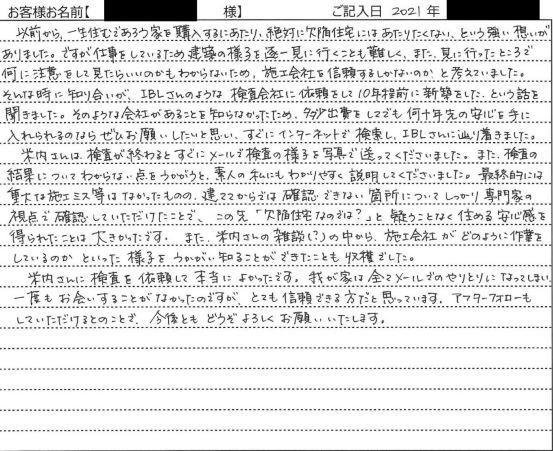 お客様お名前【 様】 ご記入日 2021年
以前から、一生住むであろう家を購入するにあたり、絶対に欠陥住宅にはあたりたくない、という強い想いが
ありました。ですが仕事をしているため建築の様子を逐一見に行くことも難しく、また、見に行ったところで
何に注意をして見たらいいのかもわからないため、施工会社を信頼するしかないのか と考えていました。
そんな時に知り合いが、IBLさんのような 検査会社に依頼をして10年程前に新築をした、という話を
聞きました。そのような会社があることも知らなかったため、多少出費をしてでも何十年先の安心を手に
入れられるのならぜひお願いしたいと思い、すぐにインターネットで検索し、IBLさんに辿り着きました。
米内さんは、検査が終わるとすぐにメールで検査の様子を写真で送ってくださいました。また、検査の
結果についてわからない点をうかがうと、素人の私にもわかりやすく説明してくださいました。最終的には
重大な施工ミス等はなかったものの、建ててからでは確認できない箇所についてしっかり専門家の
視点で確認していただけたことで、この先「欠陥住宅なのでは?」と疑うことなく住める安心感を
得られたことは大きかったです。また、米内さんの雑談(?)の中から、施工会社がどのように作業を
しているのか といった様子をうかがい知ることができたことも収穫でした。
米内さんに検査を依頼して本当によかったです。我が家は全てメールでのやりとりになってしまい、
一度もお会いすることがなかったのですが、とても信頼できる方だと思っています。アフターフォローも
していただけるとのことで、今後ともどうぞよろしくお願いいたします。